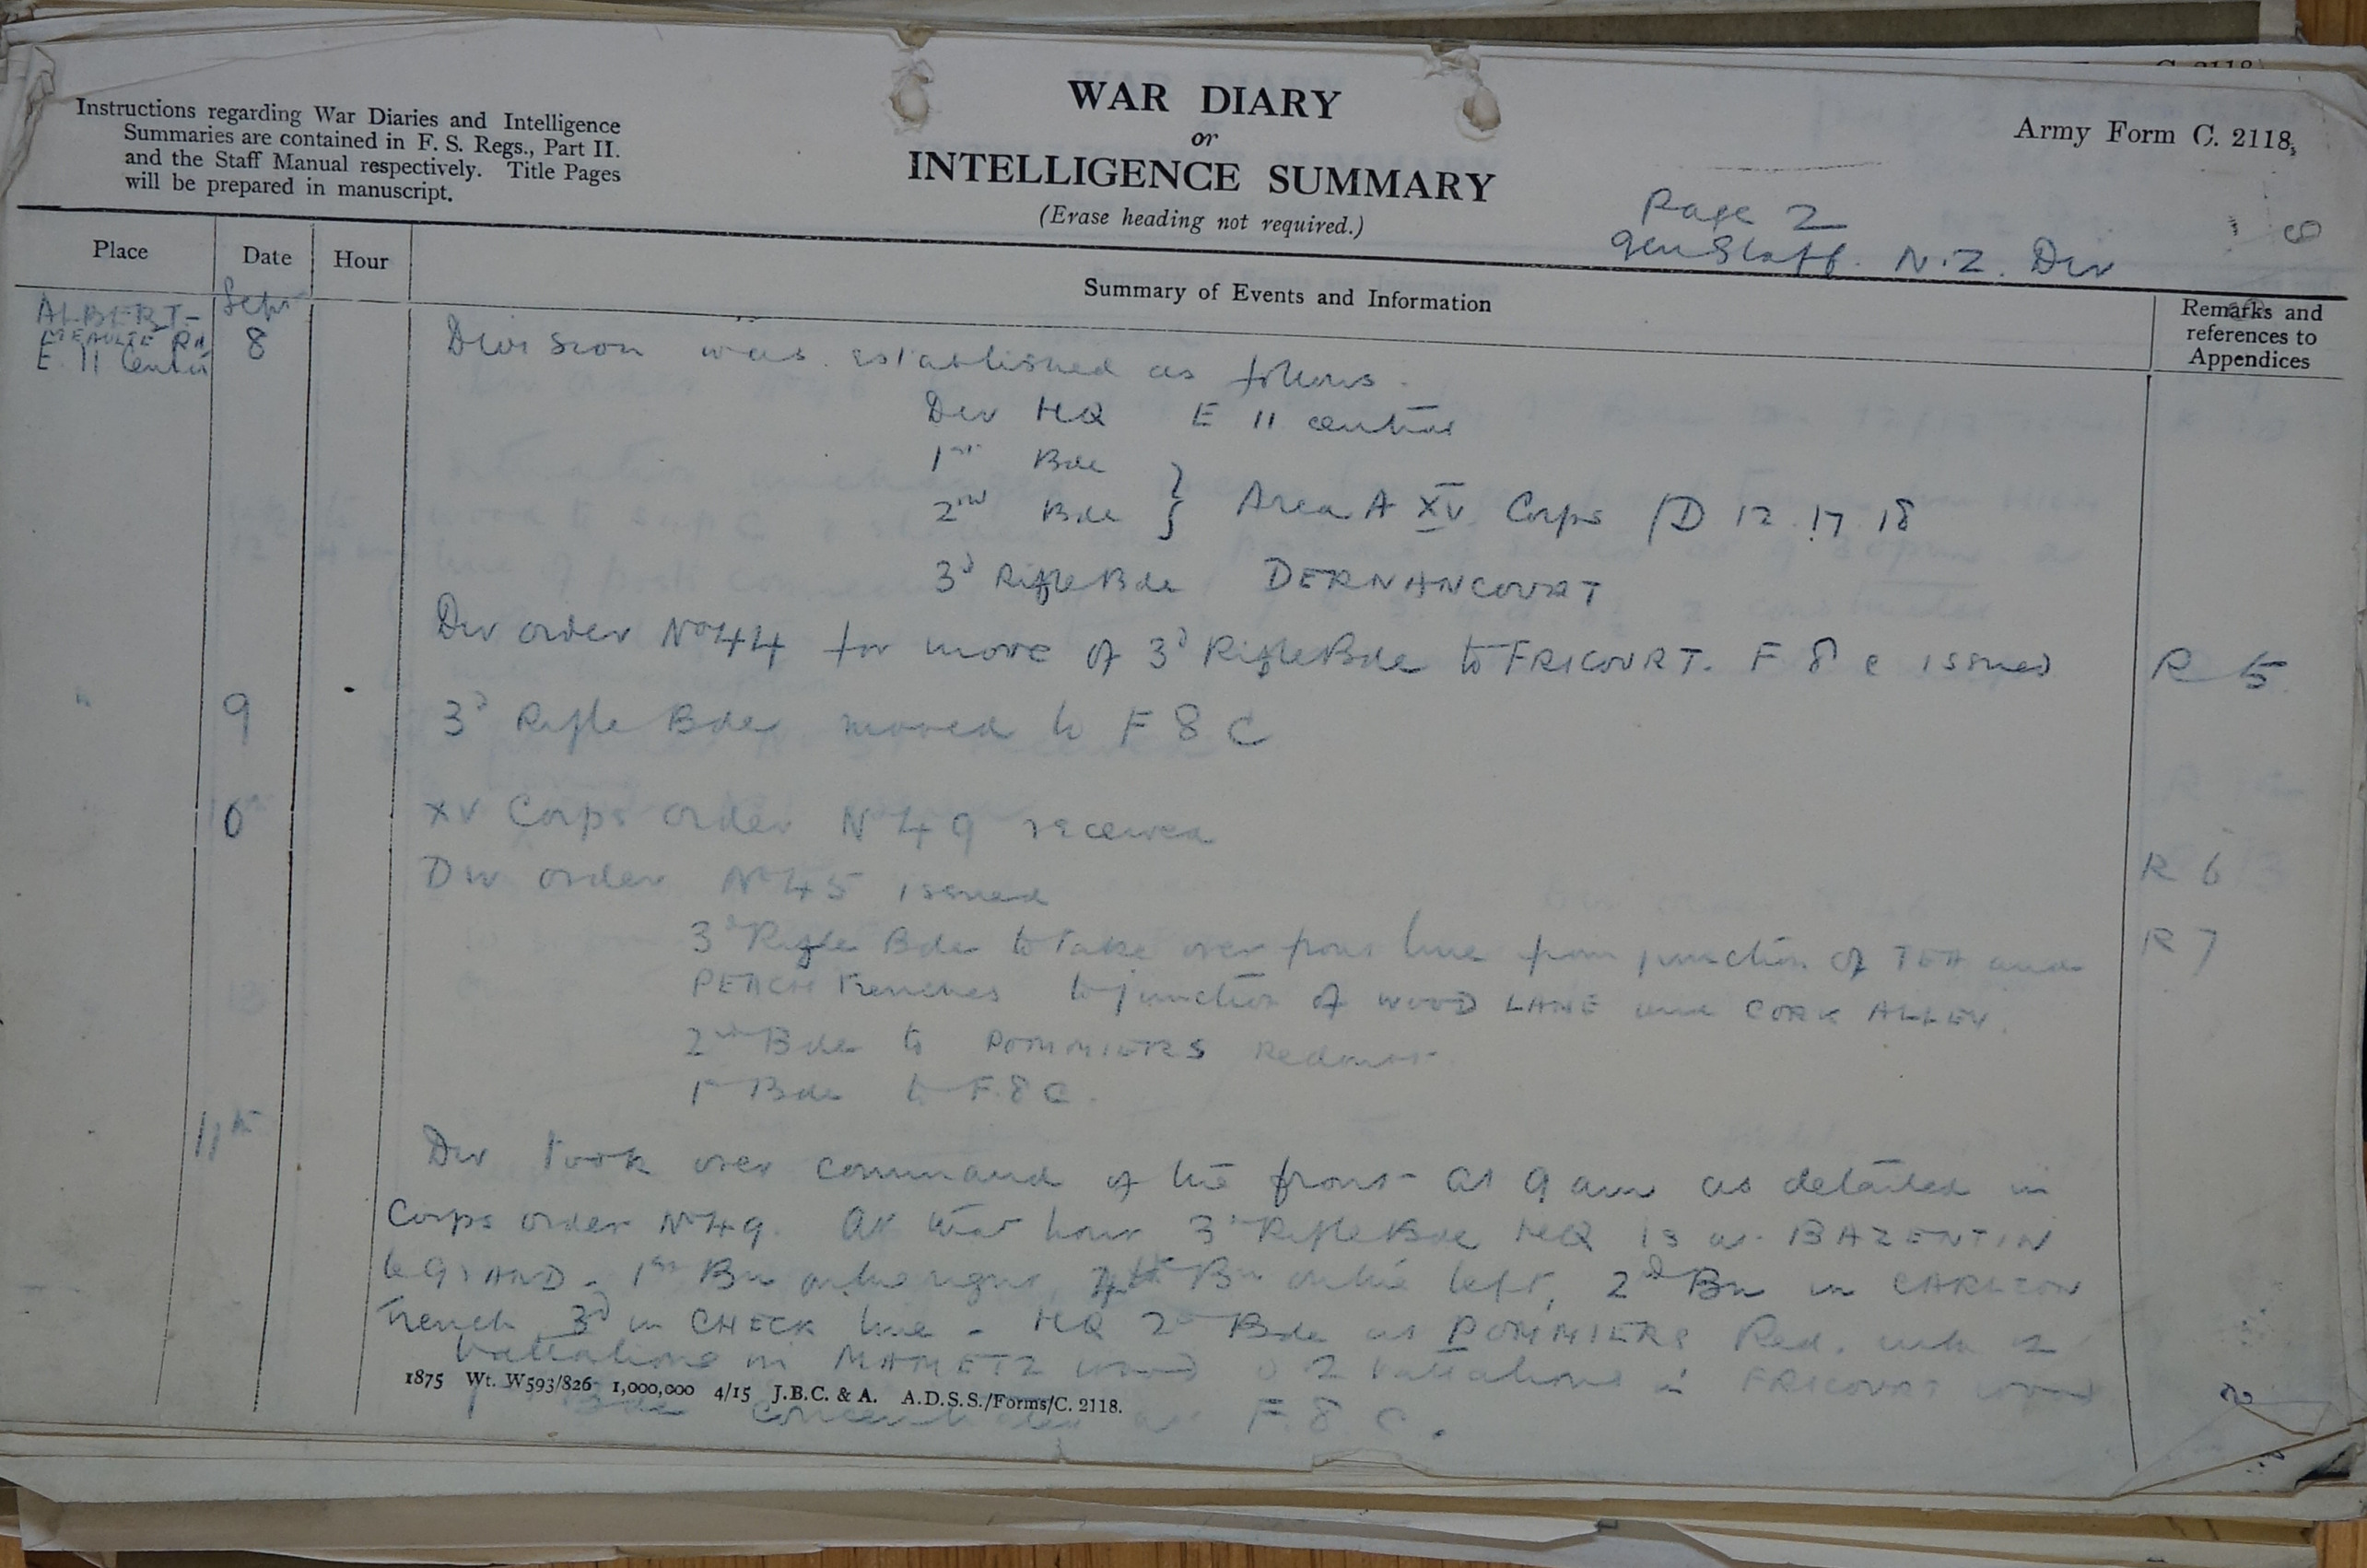 Instructions regarding War Diaries and Intelligence
Summaries are contained in F. S. Regs., Part II.
and the Staff Manual respectively. Title Pages
will be prepared in manuscript.
WAR DIARY
or
INTELLIGENCE SUMMARY
(Erase heading not required.)
Army Form C. 2118.
Page 2
Gen Staff. N.Z. Div
Place
Date
Hour
Summary of Events and Information
Remarks and
references to
Appendices
ALBERT-
MEAULTE Rd
E 11 Central
Sept
8
Division was established as follows.
Div HQ E 11 central
1st Bde
2nd Bde } Area A XV Corps /D 12 17 18
3d Rifle Bde DERNANCOURT
Div order No 44 for move of 3d Rifle Bde to FRICOURT. F 8 c issued
R 5
"
9
3d Rifle Bde moved to F 8 C
0th
XV Corps order No 49 received
R 6
Div order No 45 issued
3d Rifle Bde to take over front line from junction of TEA and
R 7
PEACH Trenches to junction of WOOD LANE and CORK ALLEY.
2nd Bde to POMMIERS Redoubt
1st Bde to F.8 C.
11th
Div took over command of the front at 9 am as detailed in
Corps order No 49. At that hour 3d Rifle Bde HQ is at BAZENTIN
le GRAND. 1st Bn on the right, 4th Bn on the left, 2d Bn in CARLTON
Trench 3d in CHECK line - HQ 2d Bde at POMMIERS Red. with 2
battalions in MAMETZ wood & 2 battalions in FRICOURT wood
1st Bde concentrated at F. 8 C.
1875 Wt. W593/826 1,000,000 4/15 J.B.C. & A. A.D.S.S./Forms/C. 2118.
2